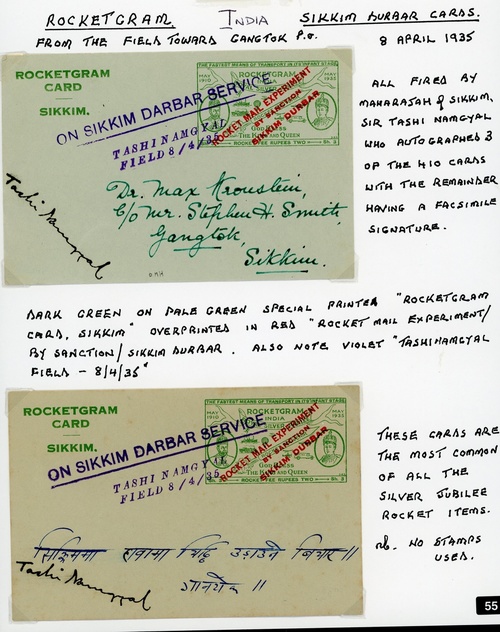 ROCKETGRAM INDIA SIKKIM DURBAR CARDS.
FROM THE FIELD TOWARD GANGTOK P.O. 8 APRIL 1935
ROCKETGRAM
CARD
SIKKIM.
THE FASTEST MEANS OF TRANSPORT IN ITS INFANT STAGE
MAY 1910
ROCKETGRAM
MAY 1935
ROCKET MAIL EXPERIMENT
BY SANCTION
SIKKIM DURBAR
THE KING AND QUEEN
ROCKETGRAM RUPEES TWO
ON SIKKIM DARBAR SERVICE
TASHI NAMGYAL
FIELD 8/4/35
Tashi Namgyal
Dr. Max Kronstein,
C/o Mr. Stephen H. Smith,
Gangtok,
Sikkim.
ALL FIRED BY
MAHARAJAH of SIKKIM,
SIR TASHI NAMGYAL
WHO AUTOGRAPHED 3
OF THE 410 CARDS
WITH THE REMAINDER
HAVING A FACSIMILE
SIGNATURE.
DARK GREEN ON PALE GREEN SPECIAL PRINTED "ROCKETGRAM
CARD, SIKKIM" OVERPRINTED IN RED "ROCKET MAIL EXPERIMENT/
BY SANCTION/SIKKIM DURBAR. ALSO NOTE VIOLET "TASHINAMGYAL
FIELD - 8/4/35"
ROCKETGRAM
CARD
SIKKIM.
THE FASTEST MEANS OF TRANSPORT IN ITS INFANT STAGE
MAY 1910
ROCKETGRAM
INDIA
MAY 1935
ROCKET MAIL EXPERIMENT
BY SANCTION
SIKKIM DURBAR
THE KING AND QUEEN
ROCKETGRAM RUPEES TWO
ON SIKKIM DARBAR SERVICE
TASHI NAMGYAL
FIELD 8/4/35
सिक्किममा हावामा चिट्ठि उडाउने बिचार ॥
Tashi Namgyal
THESE CARDS ARE
THE MOST COMMON
OF ALL THE
SILVER JUBILEE
ROCKET ITEMS.
NB. NO STAMPS
USED.
55